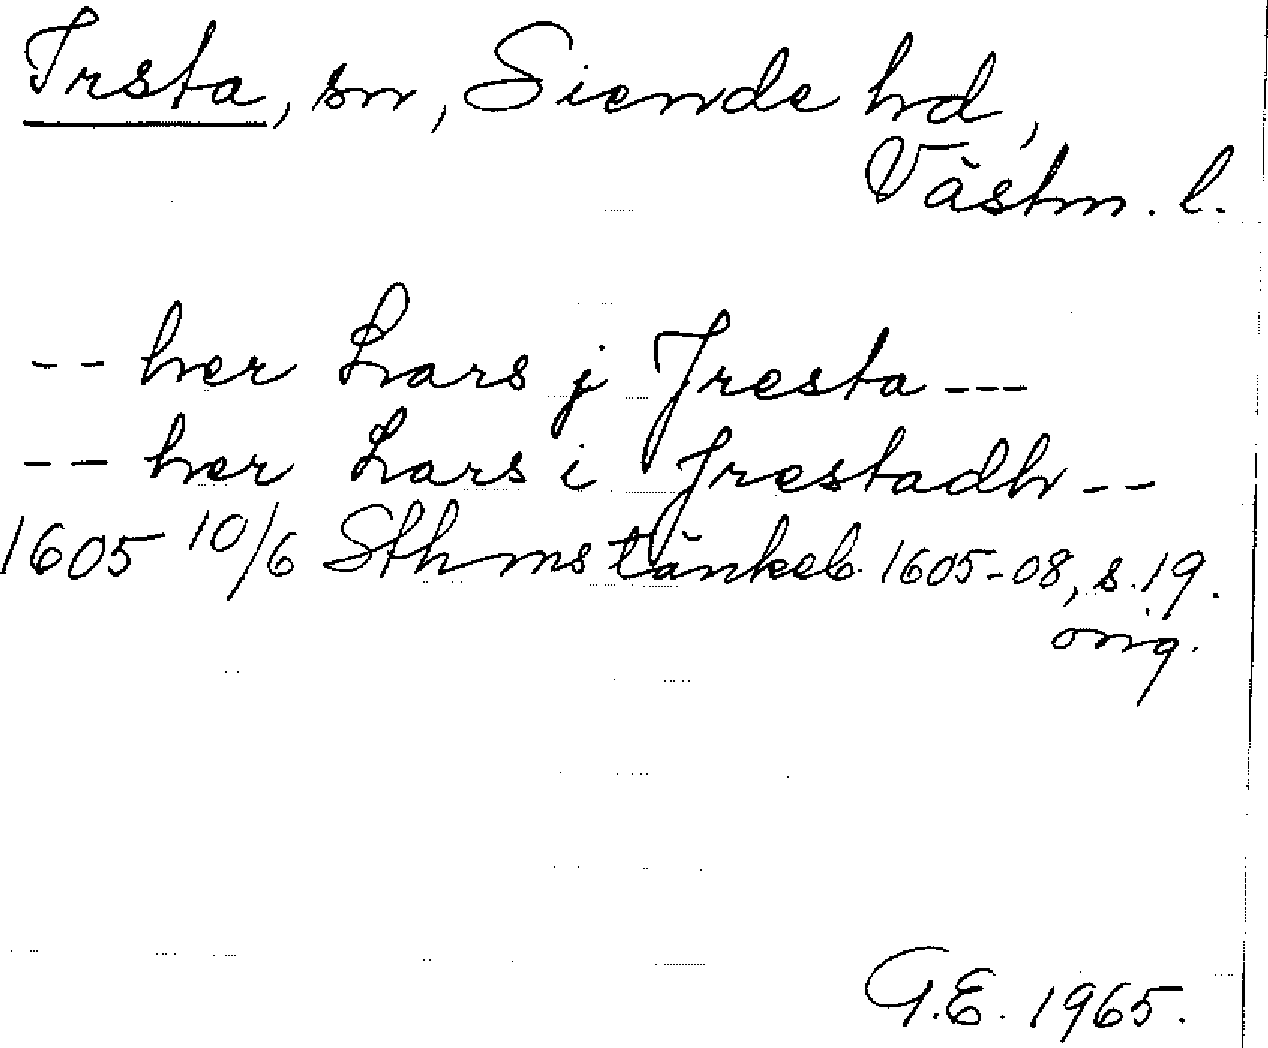 Irsta, sn, Siende hd,
Västm. l.
-- her Lars j Jresta ---
-- her Lars i Jrestadh --
1605 10/6 Sthms tänkeb. 1605-08, s. 19.
orig.
G.E. 1965.